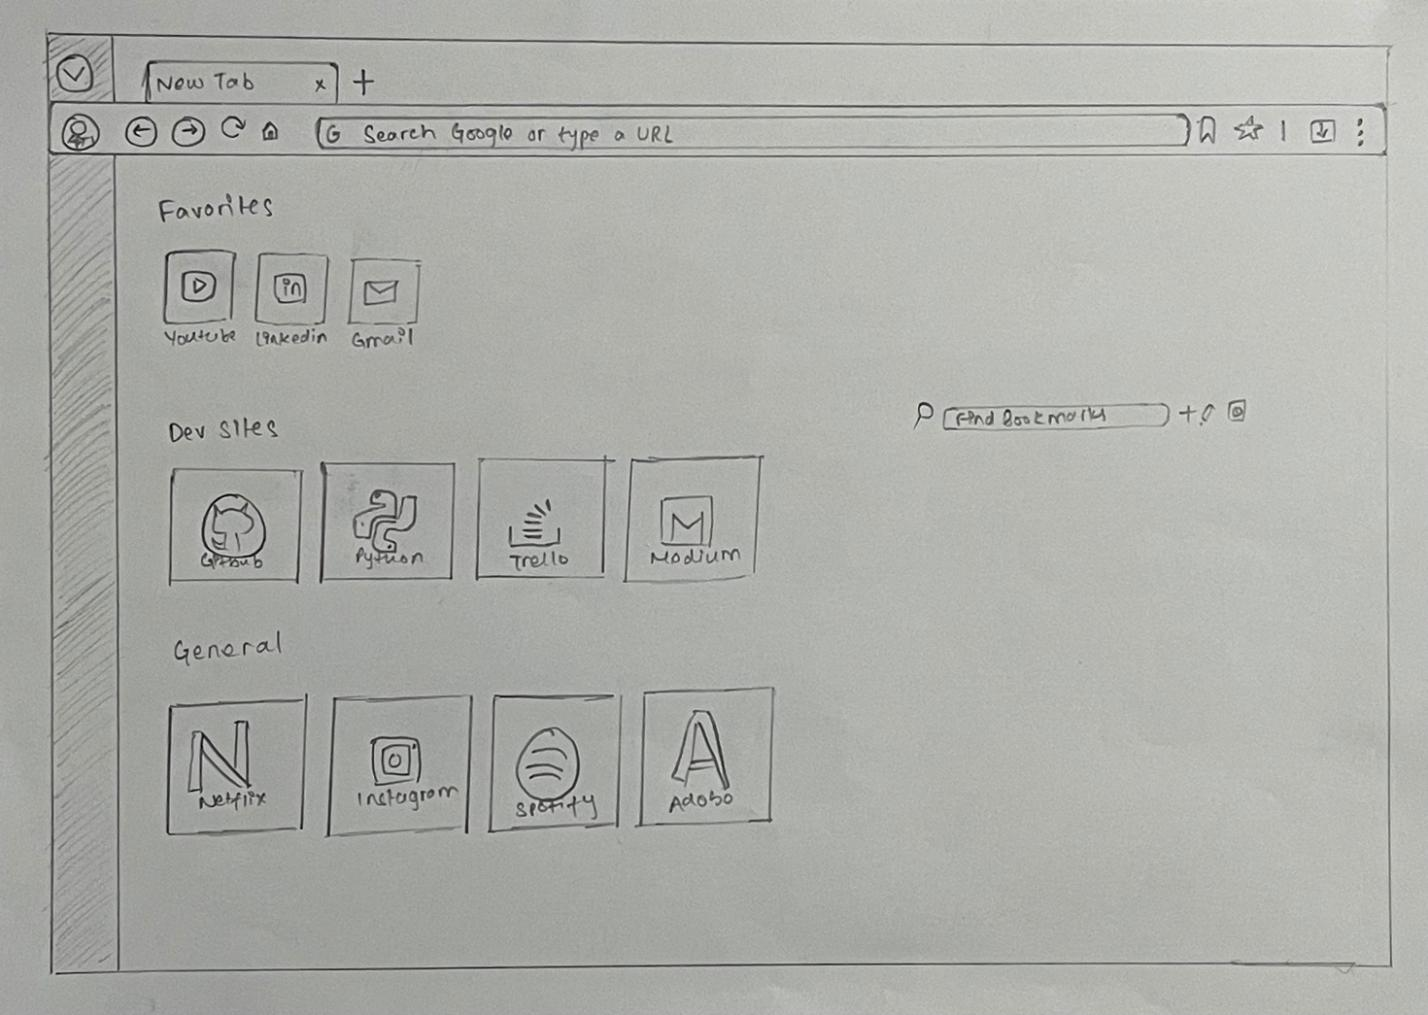 New Tab x +
G Search Google or type a URL
Favorites
in
Youtube Linkedin Gmail
Find Bookmarks +
Dev sites
Github Python Trello Medium
General
N A
Netflix Instagram Spotify Adobe